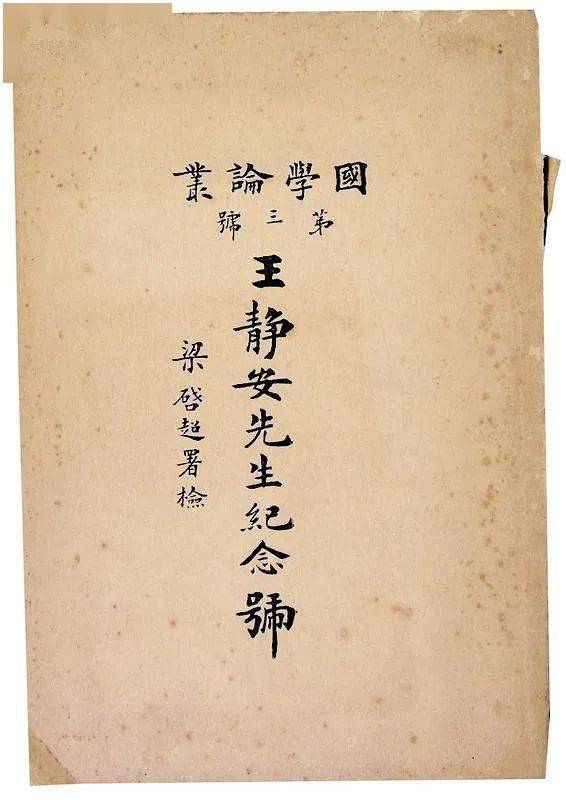 國學論叢
第三號
王静安先生紀念號
梁啓超署檢